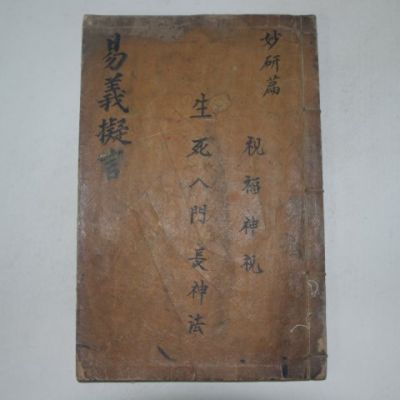 妙研篇
祝福神祝
生死八門長神法
易義擬言